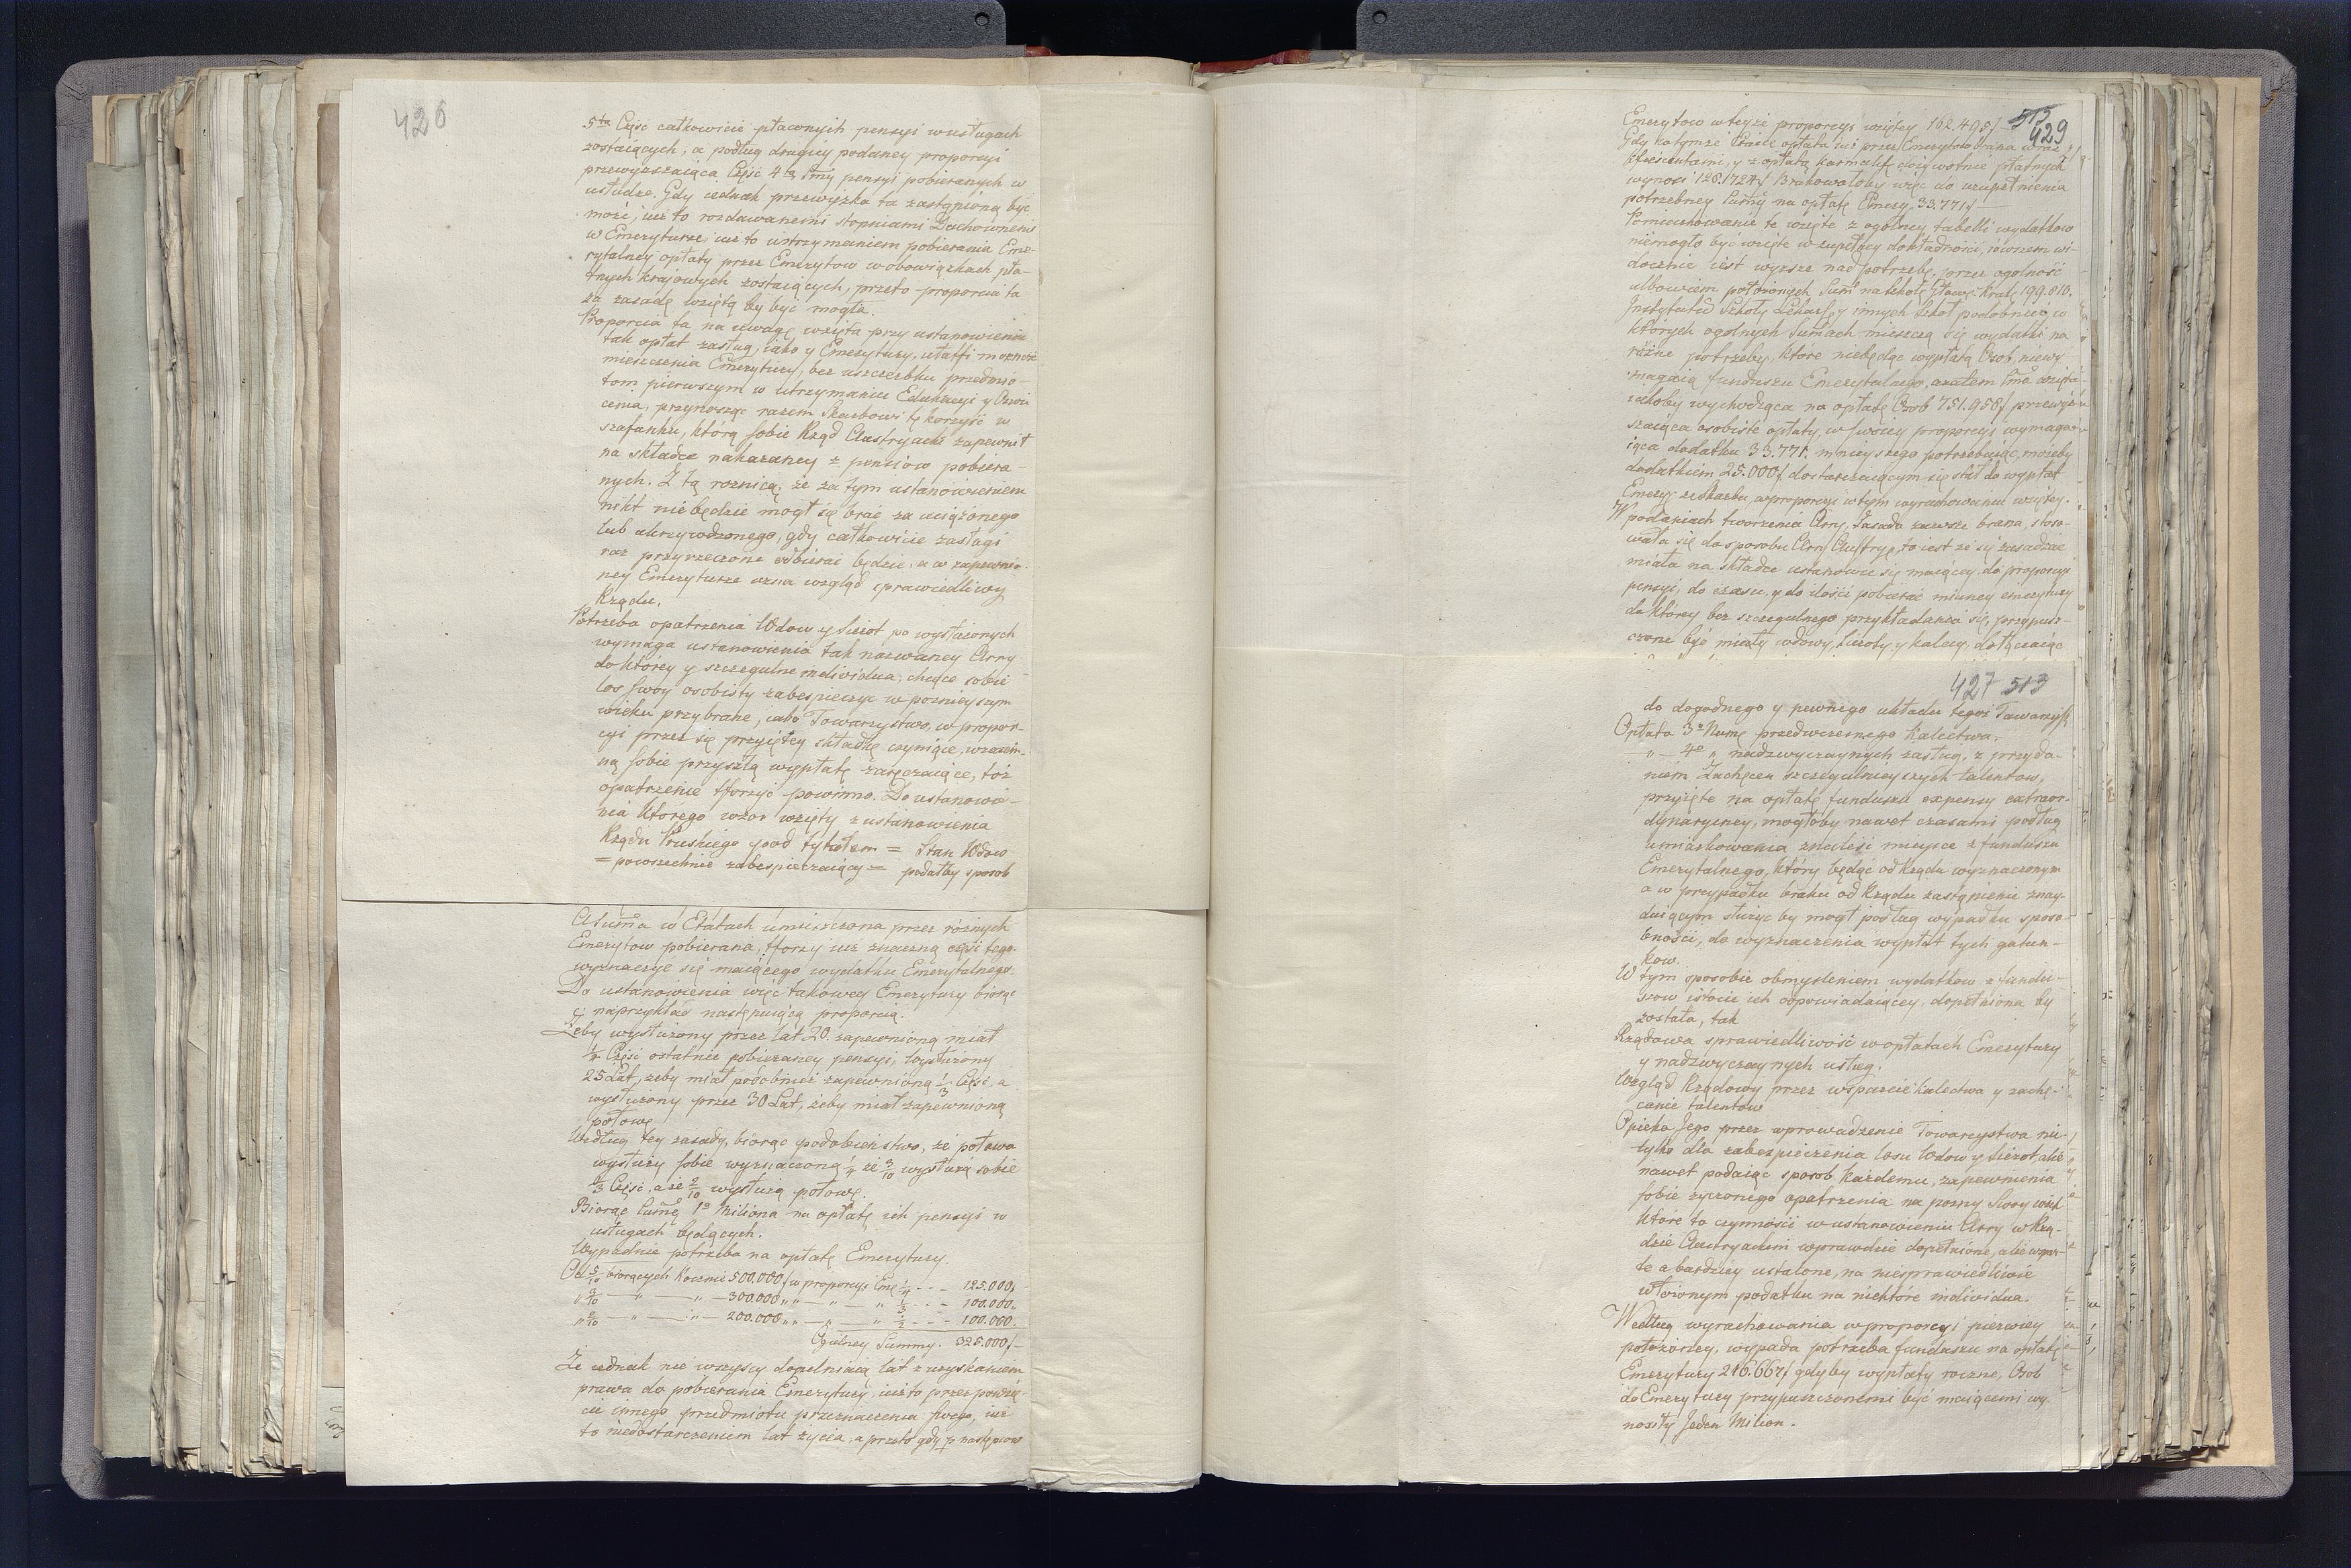 426
5ta Część całkowicie płaconych pensyi w usługach
zostaiących, a podług drugiey podaney proporcyi
przewyższaiąca Część 4tą Sum̃y pensyi pobieranych w
usłudze. Gdy iednak przewyżka ta zastąpioną być
może, iuż to rozdawanemi stopniami Duchownemi
w Emeryturze, iuż to wstrzymaniem pobierania Eme-
rytalney opłaty przez Emerytow w obowiązkach pła-
tnych krajowych zostaiących, przeto proporcia ta
za zasadę wziętą by być mogła.
Proporcia ta na uwagę wzięta przy ustanowieniu
tak opłat zasług, iako y Emerytury, umieszczenia Emerytury, bez uszczerbku przedmio-
tom pierwszym w utrzymaniu Edukacyi y Oświ
cenia, przynosząc razem Skarbowi tę korzyść w
szafunku, którą sobie Rząd Austryacki zapewnił
na składce nakazaney z pensiow pobiera-
nych. Z tą roznicą, że za tym ustanowieniem
nikt nie będzie mogł się brać za uciążonego
lub ukrzywdzonego, gdy całkowicie zasługi
raz przyrzeczone odbierać będzie, a w zapewnio-
ney Emeryturze uzna wzgląd sprawiedliwy
Rządu.
Potrzeba opatrzenia Wdow y Sierot po wysłużonych
wymaga ustanowienia tak nazwaney Arry
do którey y szczegulne individua, chcące sobie
los swoy osobisty zabespieczyć w poznieyszym
wieku przybrane, iako Towarzystwo, w propor-
cyi przez się przyiętey składkę czyniące, wzaiem-
ną sobie przyszłą wypłatę zaręczaiące, toż
opatrzenie tforzyć powinno. Do ustanowie-
nia którego wzor wzięty z ustanowienia
Rządu Pruskiego pod tytułem = Stan Wdow
= powszechnie zabespieczaiący = podałby sposob
A Summa w Etatach umieszczona przez różnych
Emerytow pobierana, tforzy iuż znaczną część tego
wyznaczyć się maiącego wydatku Emerytalnego.
Do ustanowienia więc takowey Emerytury biorąc
naprzykład następuiącą proporcią.
Żeby wysłużony przez lat 20. zapewnioną miał
1/4 Część ostatnie pobieraney pensyi, Wysłużony
25 Lat, żeby miał podobnież zapewnioną 1/3 Część, a
wysłużony przez 30 Lat, żeby miał zapewnioną
połowę
Według tey zasady, biorąc podobieństwo, że połowa
wysłuży sobie wyznaczoną 1/4 że 3/10 wysłużą sobie
1/3 Część, a że 2/10 wysłużą połowę.
Biorąc Sum̃ę 1o Miliona na opłatę ich pensyi w
usługach będących.
Wypadnie potrzeba na opłatę Emerytury.
Od 5/10 biorących Rocznie 500.000 f w proporcyi Emę 1/4 - - - 125.000 f
" 3/10 — " — " — 300.000 " " — " — " 1/3 - - - 100.000.
" 2/10 — " — " — 200.000 " " — " — " 1/2 - - - 100.000.
Ogolney Summy. 325.000 f —
Że iednak nie wszyscy dopełniaią lat z uzyskaniem
prawa do pobierania Emerytury, iuż to przez powzię-
cie innego przedmiotu przeznaczenia swego, iuż
to niedostarczeniem lat życia, a przeto gdy
513
429
Emerytow w teyże proporcyi wziętey 162.495 f —
wynosi 128.724 f Brakowałoby więc do uzupełnienia
potrzebney Sumy na opłatę Emery. 33.771 f —
Pomiarkowanie te wzięte z ogolney tabelli wydatkow
niemogło być wzięte w zupełney dokładności, rownem wi-
docznie iest wyższe nad potrzebę, przez ogolność
ulbowiem położonych Sum̃ na Szkołę Główn. Krak. 199.810.
Instytutu Szkoły Lekars. y innych Szkoł podobnież, w
których ogolnych Sumach mieszczą się wydatki na
różne potrzeby, które niebędąc wypłatą Osob, niewy-
magaią funduszu Emerytalnego, a zatem Sm̃a wzięta
iakoby wychodząca na opłatę Osob 751.958 f przewyż-
szaiąca osobiste opłaty, w swoiey proporcyi wymaga-
iąca dodatku 33.771. mnieyszego potrzebuiąc, możeby
dodatkiem 25.000 f dostarczaiącym się stał do wypłat
Emery. ze Skarbu w proporcyi w tym wyrachowaniu wziętey.
W podaniach tworzenia Arry, Zasada zawsze brana, stoso-
wała się do sposobu Arry Austry. to iest że się zasadzać
miała na składce ustanowić się maiącey, do proporcyi
pensyi, do czasu, y do ilości pobierać mianey emerytury
do którey bez szczegulnego przykładania się, przypusz-
czone być miały wdowy, Sieroty y kalecy, dołączaiąc
427 513
do dogodnego y pewnego układu tegoż Towarzys.
Opłata 3o Nume przedwczesnego Kalectwa.
— " — 4o " nadzwyczaynych zasług, z przyda-
niem Zachęcen szczegulnieyszych talentow,
przyięte na opłatę funduszu expensy extraor-
dynaryiney, mogłoby nawet czasami podług
umiarkowania znaleść mieysce z funduszu
Emerytalnego, który będąc od Rządu wyznaczonym
a w przypadku braku od Rządu zastąpienie znay-
duiącym służyć by mogł podług wypadku sposo-
bności, do wyznaczenia wypłat tych gatun-
kow.
W tym sposobie obmysleniem wydatkow z fundu-
szow istocie ich odpowiadaiącey, dopełniona by
została, tak
Rządowa sprawiedliwość w opłatach Emerytury
y nadzwyczaynych usług.
Wzgląd Rządowy przez wsparcie kalectwa y zachę-
canie talentow
Opieka Jego przez wprowadzenie Towarzystwa nie
tylko dla zabezpieczenia losu Wdow y Sierot, ale
nawet podaiąc sposob każdemu, zapewnienia
sobie życzonego opatrzenia na pozny Swoy wiek
które to czynności w ustanowieniu Arry w Rzą-
dzie Austryackim wprawdzie dopełnione, ale
te a bardziey ustalone, na niesprawiedliwie
włożonym podatku na niektore individua.
Według wyrachowania w proporcyi pierwiey
położoney, wypada potrzeba funduszu na opłatę
Emerytury 216.667 f gdyby wypłaty roczne, Osob
do Emerytury przypuszczonemi być maiącemi wy-
nosiły Jeden Milion.